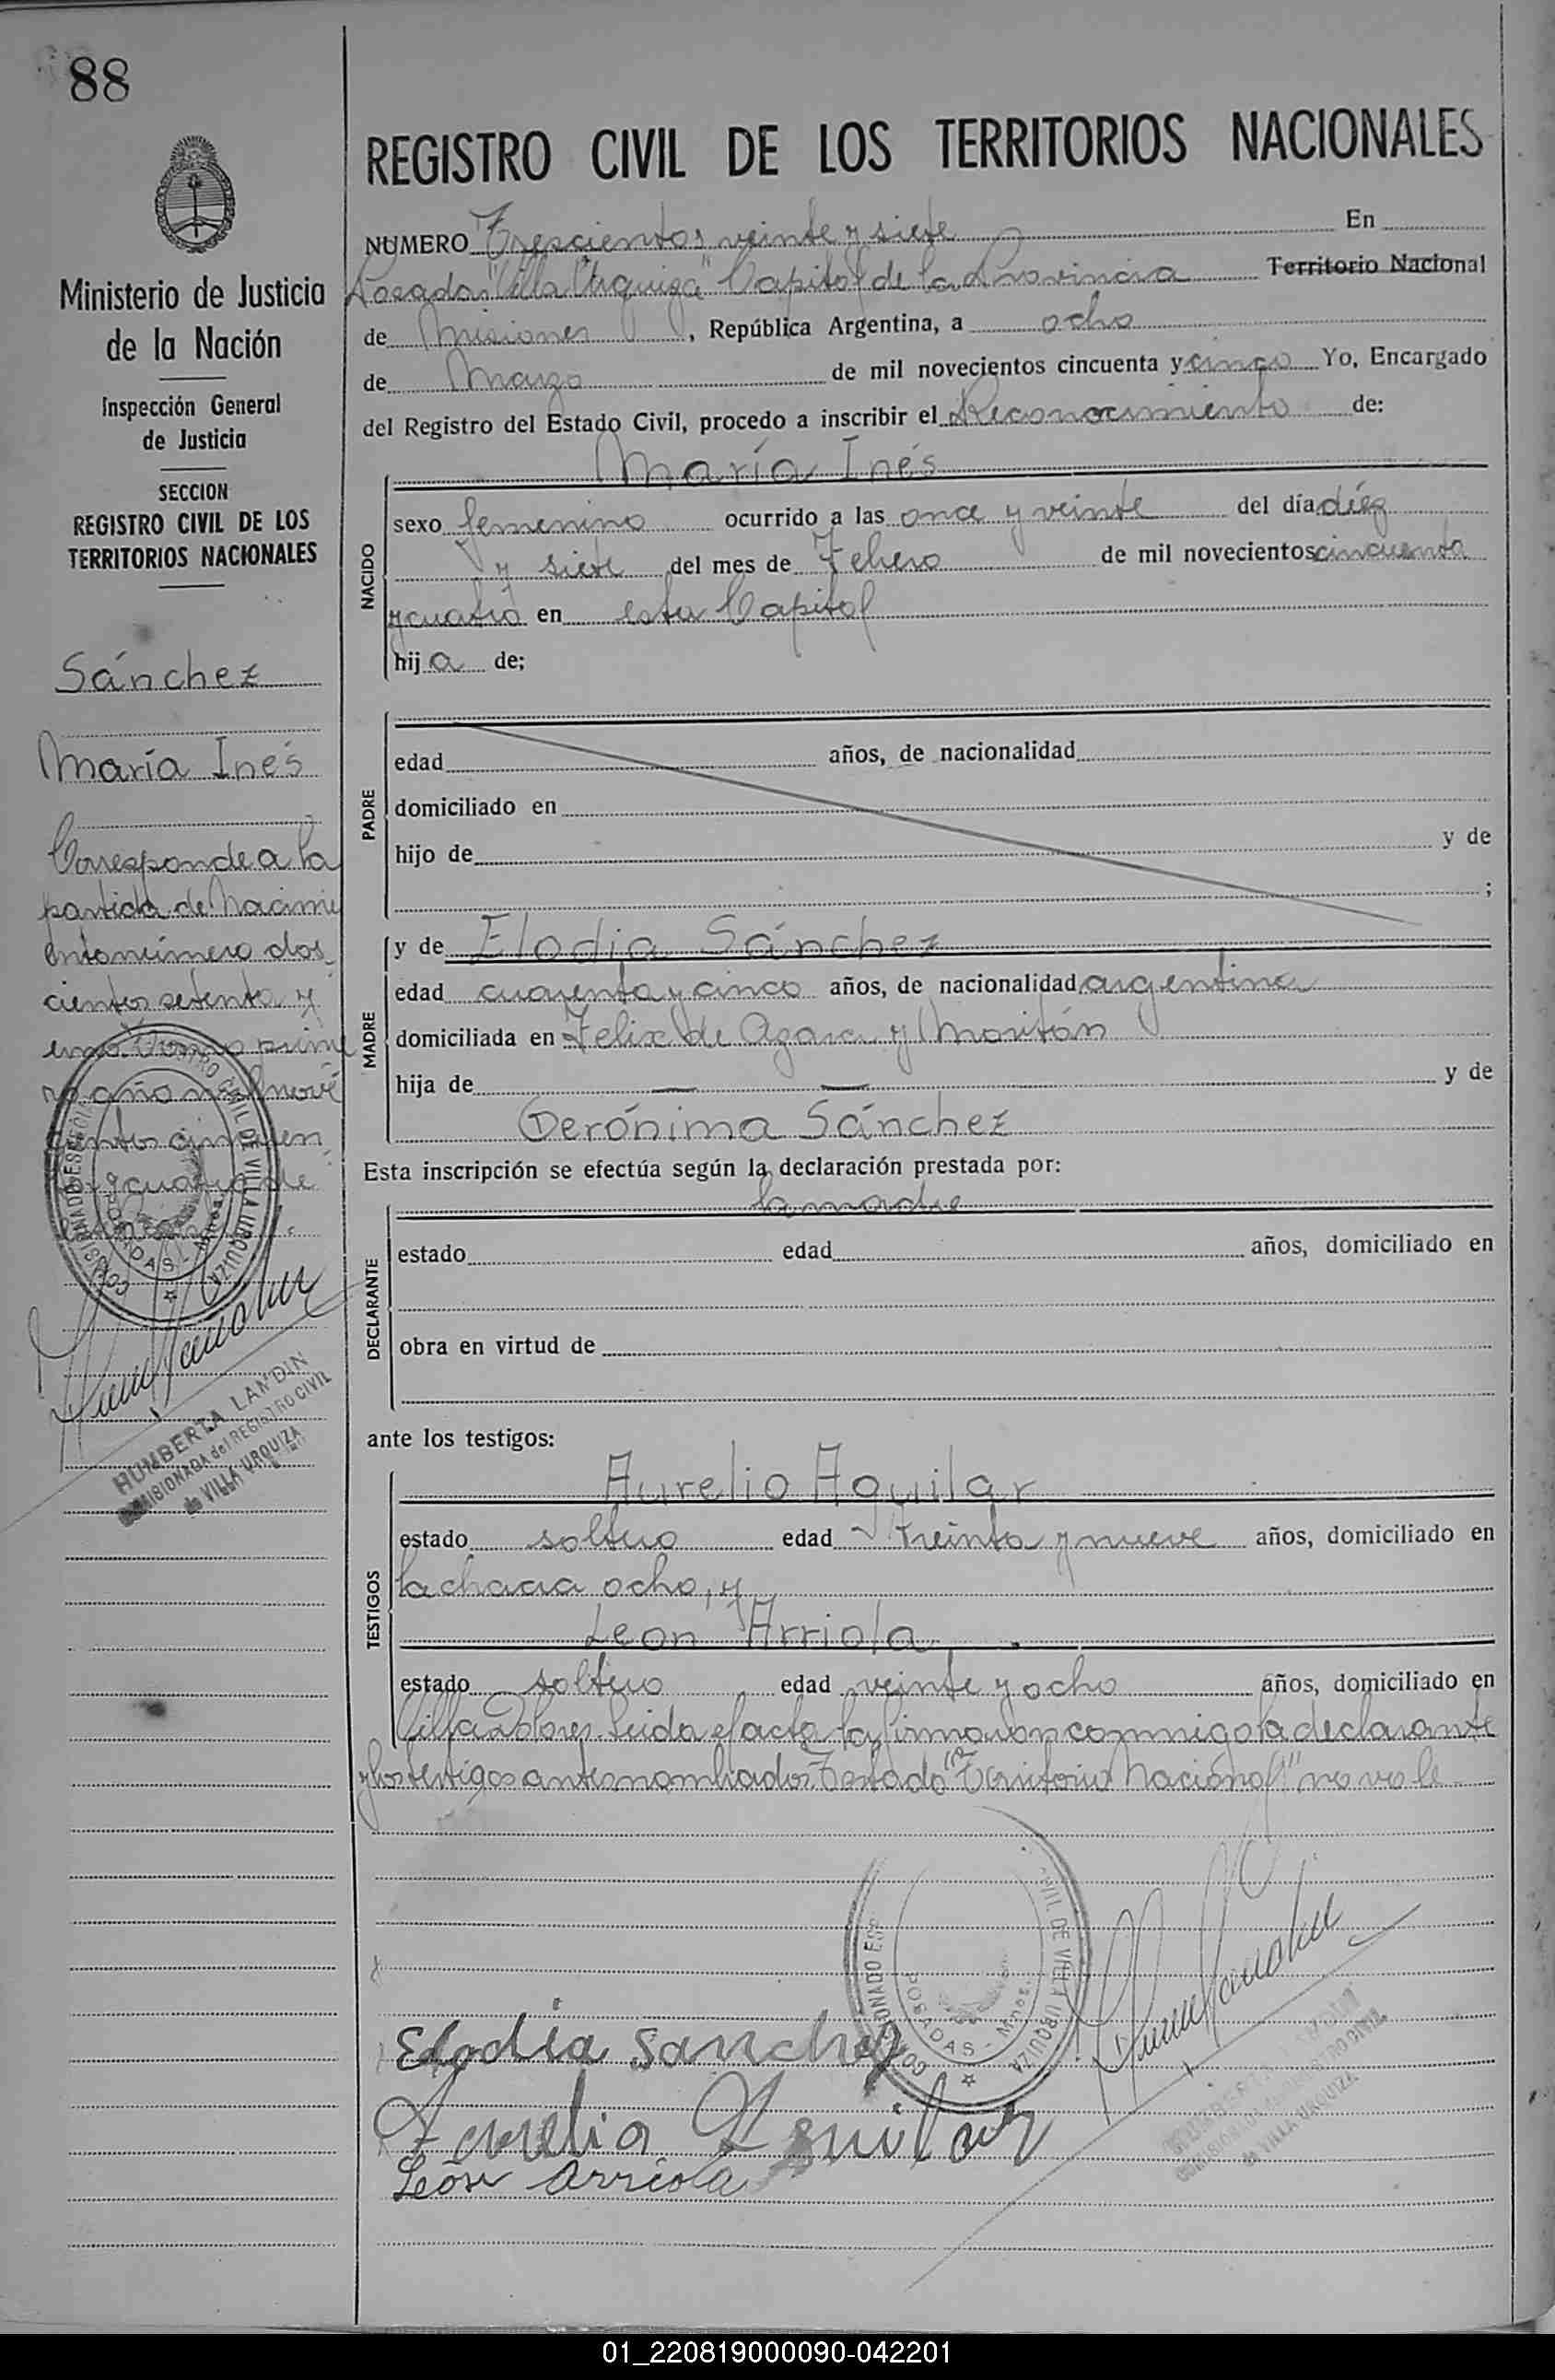 88
Ministerio de Justicia
de la Nación
Inspección General
de Justicia
SECCION
REGISTRO CIVIL DE LOS
TERRITORIOS NACIONALES
Sánchez
María Inés
Corresponde a la
partida de Nacimi
ento número dos
cientos setenta y
uno Tomo prime
ro año mil nove
cientos cincuen
ta y cuatro de
COMISIONADO ESPECIAL REGISTRO CIVIL DE VILLA URQUIZA
POSADAS - Mnes.
HUMBERTA LANDIN
COMISIONADA del REGISTRO CIVIL
de VILLA URQUIZA
REGISTRO CIVIL DE LOS TERRITORIOS NACIONALES
NUMERO Trescientos veinte y siete En
Posadas "Villa Urquiza" Capital de la Provincia Territorio Nacional
de Misiones, República Argentina, a ocho
de Marzo de mil novecientos cincuenta y cinco Yo, Encargado
del Registro del Estado Civil, procedo a inscribir el Reconocimiento de:
María Inés
NACIDO
sexo femenino ocurrido a las once y veinte del día diéz
y siete del mes de Febero de mil novecientos cincuenta
y cuatro en esta Capital
hija de;
PADRE
edad años, de nacionalidad
domiciliado en
hijo de y de
;
MADRE
y de Elodia Sánchez
edad cuarenta y cinco años, de nacionalidad argentina
domiciliada en Felix de Azara y Moritán
hija de — — y de
Gerónima Sánchez
Esta inscripción se efectúa según la declaración prestada por:
la madre
DECLARANTE
estado edad años, domiciliado en
obra en virtud de
ante los testigos:
TESTIGOS
Aurelio Aguilar
estado soltero edad treinta y nueve años, domiciliado en
la chacra ocho, y
Leon Arriola
estado soltero edad veinte y ocho años, domiciliado en
Villa Dolores. Leida el acta la firmaron conmigo la declarante
y los testigos antes nombrados. Testado "Territorio Nacional" no vale
COMISIONADO ESP CIVIL DE VILLA URQUIZA
POSADAS - Mnes.
Elodia Sanchez
Aurelio Aguilar
León Arriola
COMISIONADA del REGISTRO CIVIL
de VILLA URQUIZA
01_220819000090-042201